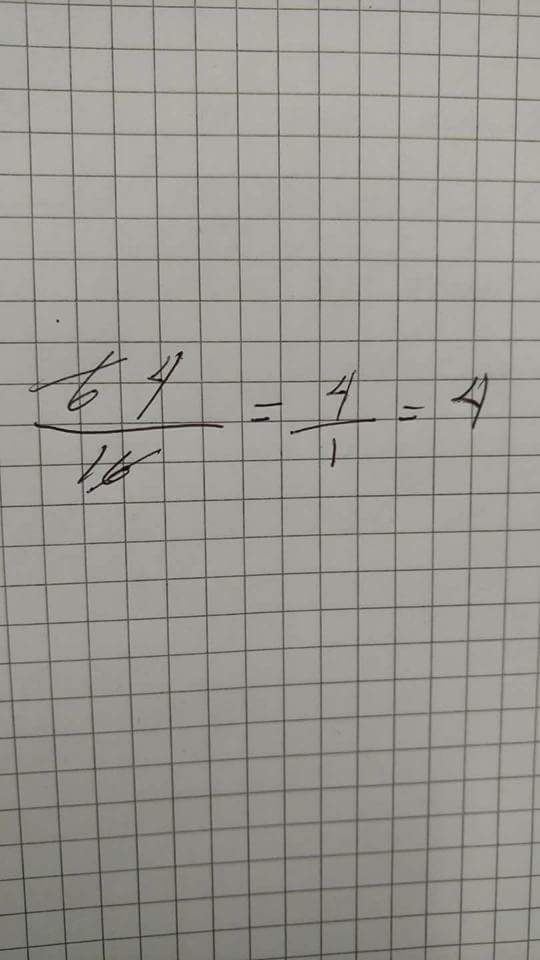 64/16 = 4/1 = 4